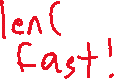 len(
fast!